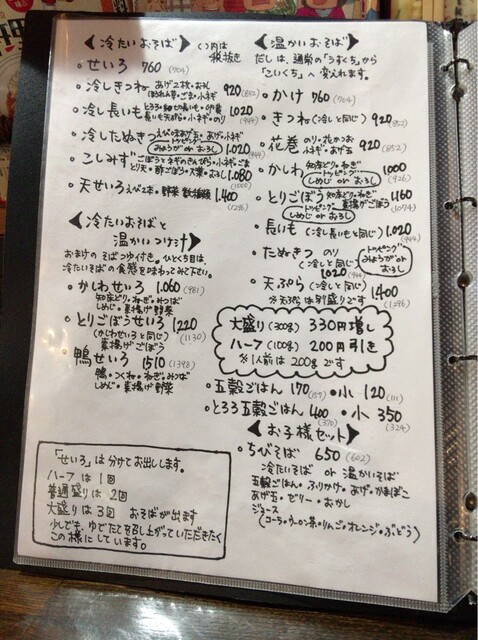 冷たいおそば
( )内は
税抜き
・せいろ 760 (704)
・冷しきつね あげ2枚・おろし
ほうれん草・ごま・小ネギ 920 (852)
・冷し長いも とろろ・細切長いも・卵黄
長いも天ぷら・小ネギ・のり 1.020 (944)
・冷したぬき えび味あげ玉・あげ・小ネギ
トッピング
みょうが or おろし 1.020 (944)
・こしみず ごぼうとネギのきんぴら・小ネギ・ごま
とり天・酢ごぼう・大葉・おろし 1.080 (1000)
・天せいろ えび2本・野菜 数種類 1.400 (1296)
冷たいおそばと
温かいつけ汁
おまけのそばつゆ付き。ひとくち目は、
冷たいそばの食感を味わってみて下さい。
・かわしせいろ 1.060 (981)
知床どり・ねぎ・みつば
しめじ・素揚げ野菜
・とりごぼうせいろ 1220 (1130)
(かわしせいろと同じ)
素揚げごぼう
・鴨せいろ 1510 (1398)
鴨・つくね・ねぎ・みつば
しめじ・素揚げ野菜
「せいろ」は分けてお出しします。
ハーフは 1回
普通盛りは 2回
大盛りは 3回 おそばが出ます
少しでも、ゆでたて召し上がっていただきたく
この様にしています。
温かいおそば
だしは、通常の「うすくち」から
「こいくち」へ変えれます。
・かけ 760 (704)
・きつね (冷しと同じ) 920 (852)
・花巻 のり・花かつお
小ネギ・あげ玉 920 (852)
・かしわ 知床どり・ねぎ
トッピング
しめじ or おろし 1000 (926)
・とりごぼう 知床どり・ねぎ
トッピング 素揚げごぼう
しめじ or おろし 1160 (1074)
・長いも (冷し長いもと同じ) 1.020 (944)
・たぬきつ のり
(冷しと同じ)
トッピング
みょうが or おろし
1020 (944)
・天ぷら (冷しと同じ) 1400 (1296)
※天ぷらは別盛りです
大盛り (300g) 330円増し
ハーフ (100g) 200円引き
※1人前は200gです
・五穀ごはん 170 (157)・小 120 (111)
・とろろ五穀ごはん 400 (370)・小 350 (324)
お子様セット
・ちびそば 650 (602)
冷たいそば or 温かいそば
五穀ごはん・ふりかけ・あげ・かまぼこ
あげ玉・ゼリー・おかし
ジュース
(コーラ・ウーロン茶・りんご・オレンジ・ぶどう)